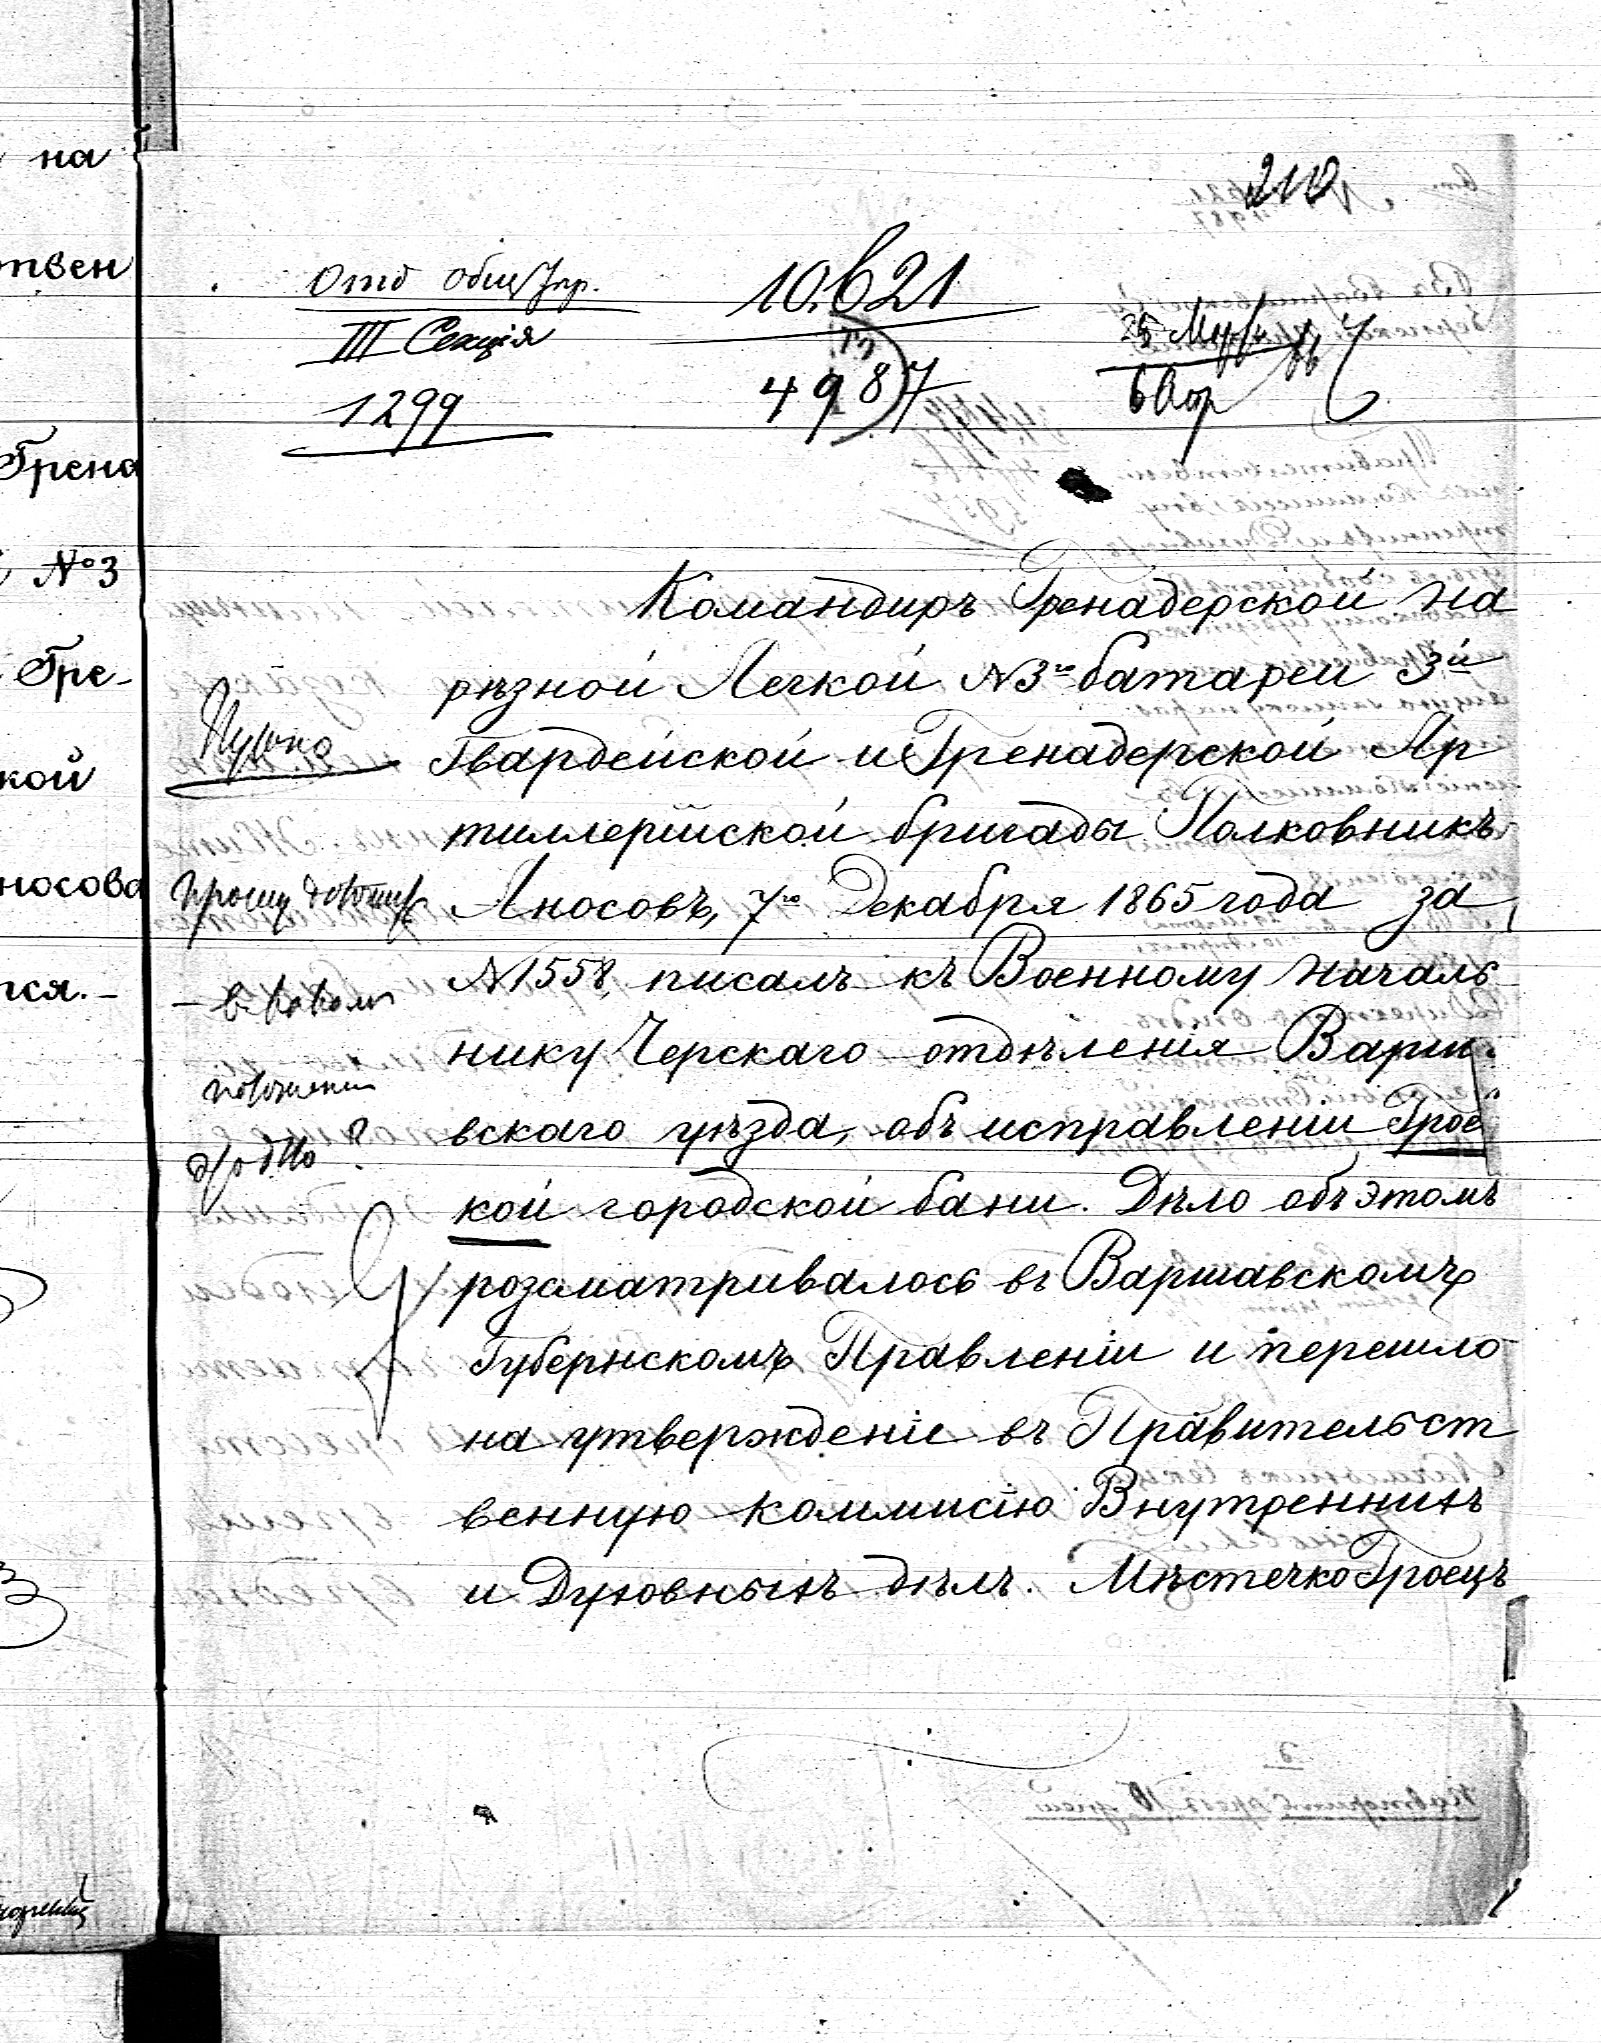 на
твен
Грена
№3
Гре-
кой
носова
тся.-
210
Отд Общ Упр.
III Секція
1299
10.621
4987
25 Марта 66
6 Апр
Командиръ Гренадерской На
рѣзной Легкой №3й батареи 3й
Гвардейской и Гренадерской Ар
тиллерійской бригады Полковникъ
Аносовъ, 7го Декабря 1865 года за
№1558, писалъ къ Военному Началь
нику Черскаго отдѣленія Варш.
вскаго уѣзда, объ исправленіи Гроец
кой городской бани. Дѣло объ этомъ
розсматривалось въ Варшавскомъ
Губернскомъ Правленіи и перешло
на утвержденіе въ Правительст
венную Коммисію Внутреннихъ
и Духовныхъ дѣлъ. Мѣстечко Гроецъ
прошу
в какомъ
положеніи
дѣло?